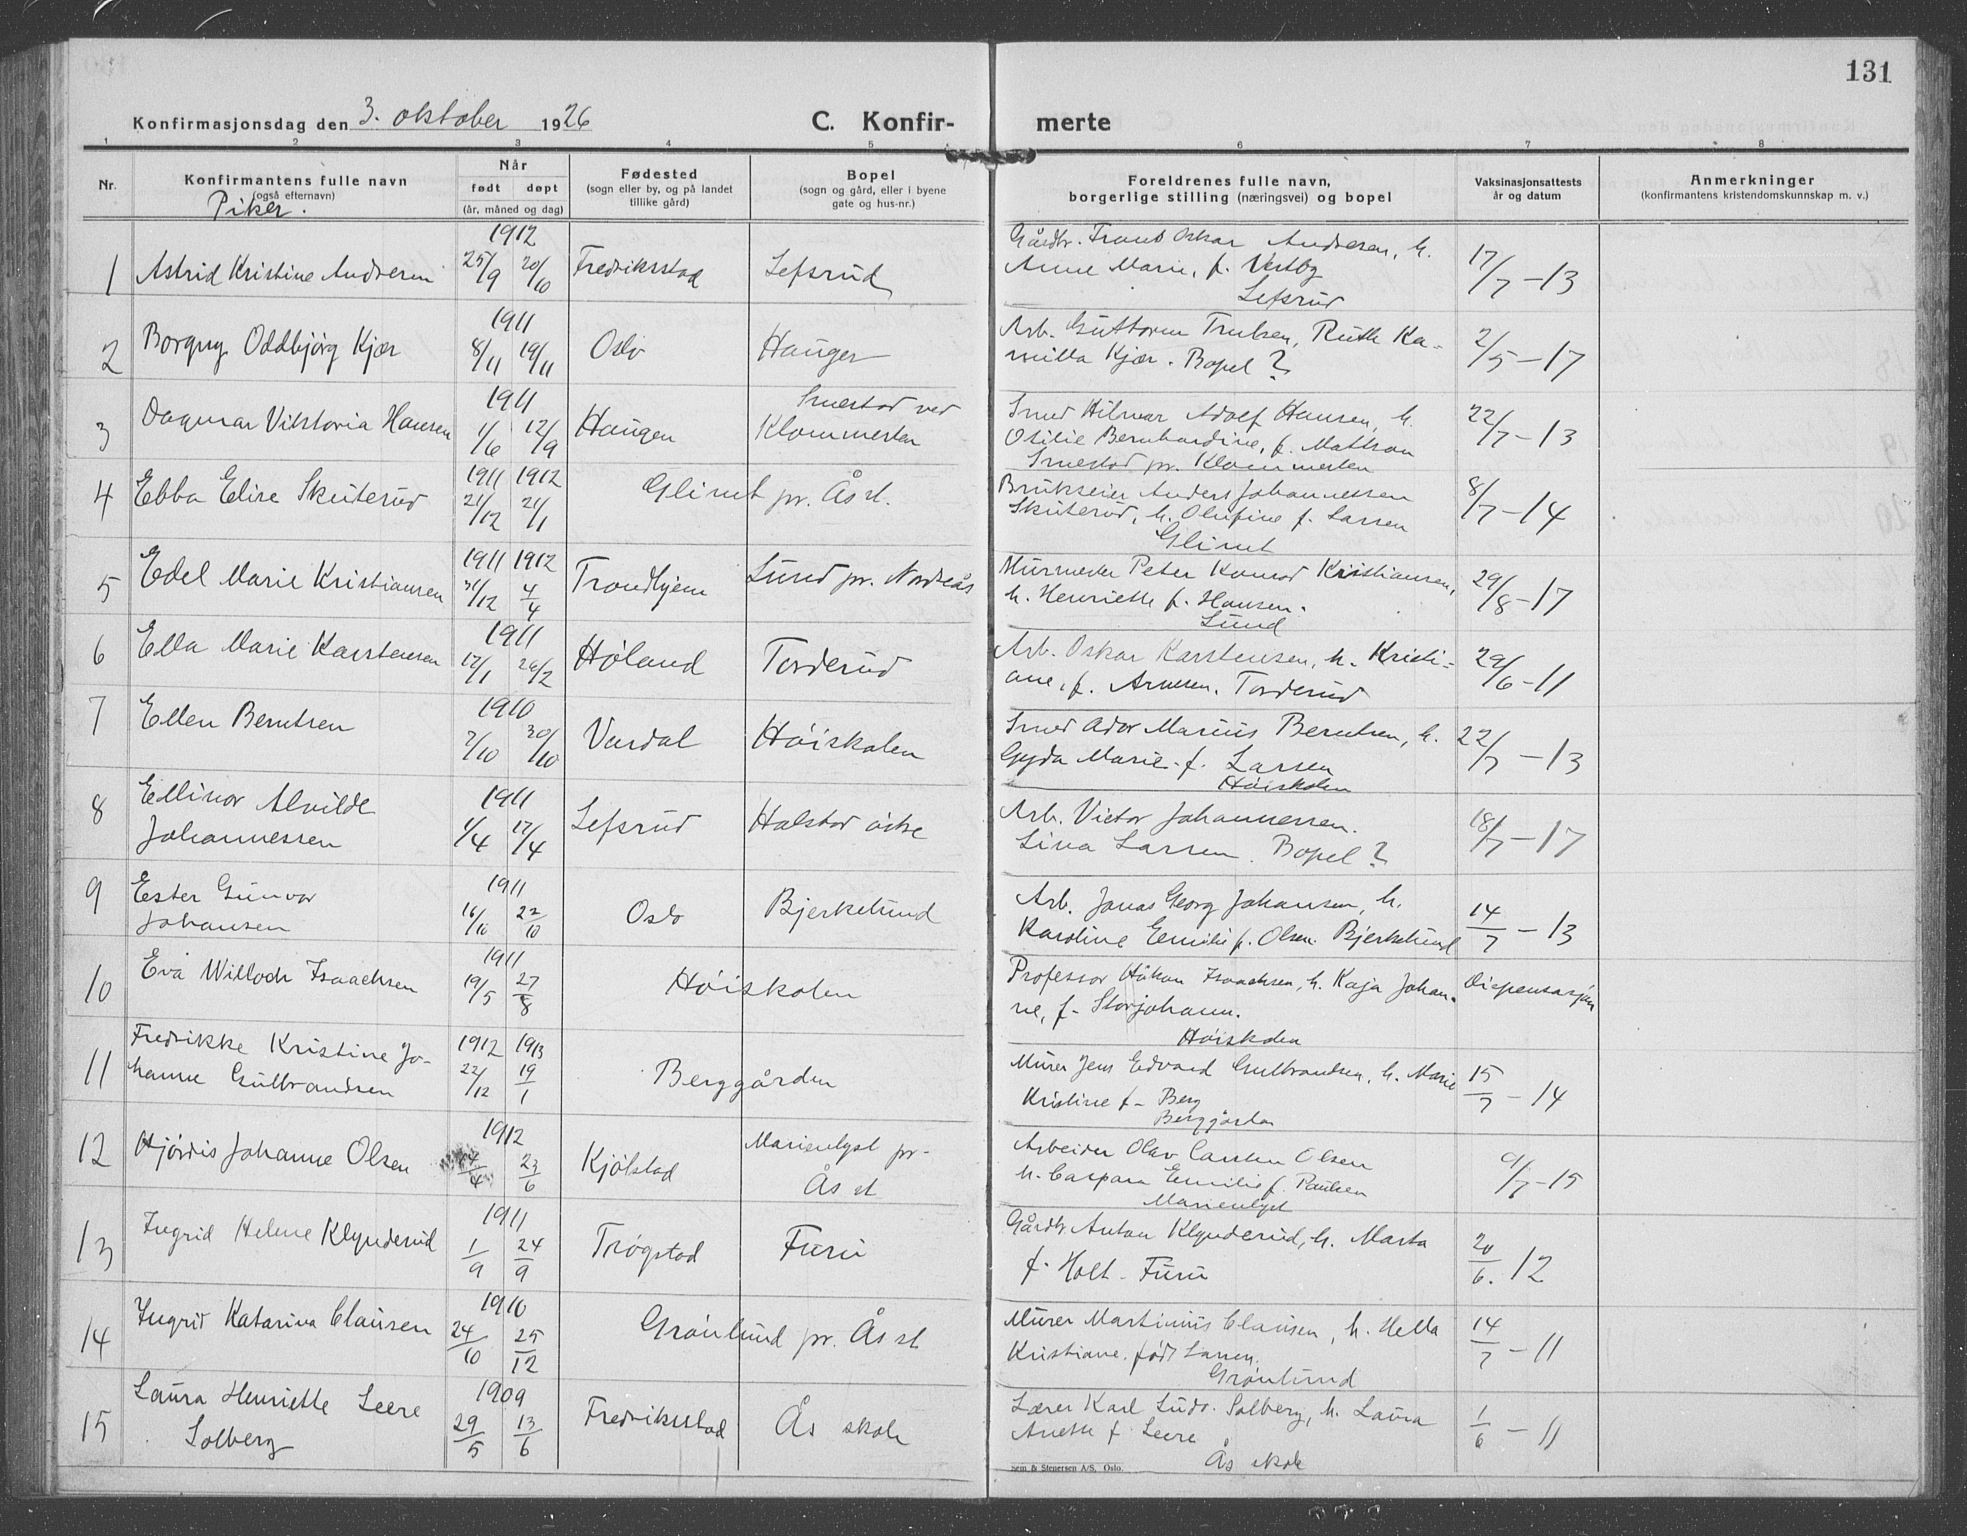 131
Konfirmasjonsdag den 3. oktober 1926
C. Konfir- merte
1 2 3 4 5 6 7 8
Nr.
Konfirmantens fulle navn
(også efternavn)
Piker.
Når
født døpt
(år, måned og dag)
Fødested
(sogn eller by, og på landet
tillike gård)
Bopel
(sogn og gård, eller i byene
gate og hus-nr.)
Foreldrenes fulle navn,
borgerlige stilling (næringsvei) og bopel
Vaksinasjonsattests
år og datum
Anmerkninger
(konfirmantens kristendomskunnskap m. v.)
1912
1 Astrid Kristine Andresen 25/9 20/10 Fredriksstad Lefsrud
Gårdbr. Frants Oskar Andresen, h.
Anne Marie, f. Vestby
Lefsrud
17/7 - 13
1911
2 Borgny Oddbjörg Kjær 8/11 19/11 Oslo Hauger
Arb. Guttorm Trulsen, Ruth Ka-
milla Kjær. Bopel?
2/5 - 17
1911
3 Dagmar Viktoria Hansen 1/6 12/9 Haugen
Smestad ved
Klommesten
Smed Hilmar Adolf Hansen, h.
Otilie Bernhardine, f. Mattson
Smestad pr. Klommesten
22/7 - 13
1911 1912
4 Ebba Elise Skuterud 21/12 21/1 Glimt pr. Ås st.
Brukseier Anders Johannessen
Skuterud, h. Olufine f. Larsen
Glimt
8/7 - 14
1911 1912
5 Edel Marie Kristiansen 31/12 4/4 Trondhjem Lund pr. Nordås
Murmester Peter Konrad Kristiansen,
h. Henriette f. Hansen.
Lund
29/8 - 17
1911
6 Ella Marie Karstensen 17/1 26/2 Høland Torderud
Arb. Oskar Karstensen, h. Kristi-
ane, f. Arnesen. Torderud
29/6 - 11
1910
7 Ellen Berntsen 2/10 30/10 Vardal Høiskolen
Smed Ador Marius Berntsen, h.
Gyda Marie f. Larsen
Høiskolen
22/7 - 13
1911
8 Ellinor Alvilde
Johannessen 1/4 17/4 Lefsrud Holstad østre
Arb. Victor Johannessen.
Lina Larsen. Bopel?
18/7 - 17
1911
9 Ester Gunvor
Johansen 16/10 22/10 Oslo Bjerkelund
Arb. Jonas Georg Johansen, h.
Karoline Emilie f. Olsen. Bjerkelund
14/7 - 13
1911
10 Eva Willoch Isaachsen 19/5 27/8 Høiskolen
Professor Håkon Isaachsen, h. Kaja Johan-
ne, f. Storjohann.
Høiskolen
Dispensasjon
1912 1913
11 Fredrikke Kristine Jo-
hanne Gulbrandsen 22/12 19/1 Berggården
Murer Jens Edvard Gulbrandsen, h. Marie
Kristine f. Berg
Berggården
15/7 - 14
1912
12 Hjørdis Johanne Olsen 14/4 23/6 Kjølstad
Marienlyst pr.
Ås st
Arbeider Olav Carsten Olsen
h. Caspara Emilie f. Paulsen
Marienlyst
9/7 - 15
1911
13 Ingrid Helene Klynderud 1/9 24/9 Trøgstad Furu
Gårdbr. Anton Klynderud, h. Marta
f. Holt. Furu
20/6. 12
1910
14 Ingrid Katarina Clausen 24/10 25/12 Grønlund pr. Ås st
Murer Martinius Clausen, h. Hella
Kristiane. født Larsen.
Grønlund
14/7 - 11
1909
15 Laura Henriette Leere
Solberg 29/5 13/6 Fredriksstad Ås skole
Lærer Karl Ludv. Solberg, h. Laura
Anette f. Leere
Ås skole
1/6 - 11
Sem & Stenersen A/S, Oslo.